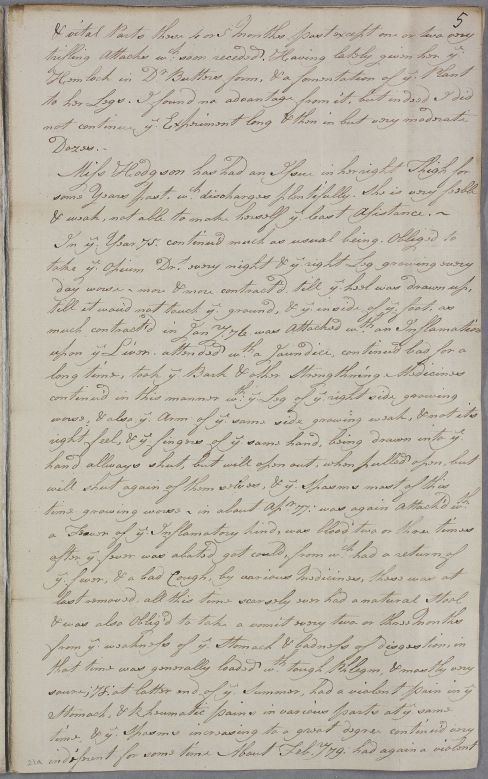 5
& vital Parts these 4 or 5 months past except one or two very
trifling Attacks wch. soon receded. Having lately given her ye.
Hemlock in Dr. Butters form, & a fomentation of ye. Plant
to her Legs. I found no advantage from it, but indeed I did
not continue ye. Experiment long & then in but very moderate
Dozes.-
Miss Hodgson has had an Issue in her right Thigh for
some Years past, wch. discharges plentifully. She is very feeble
& weak, not able to make herself ye. least Asistance. ~
In ye. Year 75. continued much as usual being Obliged to
take ye. Opium Drt. every night & ye. right Leg growing every
day worse - more & more contract'd till ye. heel was drawn up,
till it would not touch ye. ground, & ye. inside of ye. foot, as
much contract'd in Janry. 76 was Attacked wth. an Inflamation
upon ye. Liver, attended wth. a Jaundice, continued bad for a
long time, took ye. Bark & other Strengthning Medicines
continued in this manner wth. ye. Leg of ye. right side growing
worse, & also ye. Arm of ye. same side growing weak, & not its
right feel, & ye. fingers of ye. same hand, being drawn into ye.
hand allways shut, but will open out, when pulled open, but
will shut again of them selves, & ye. Spasms most of this
time growing worse - in about Apr. 77: was again Attack'd wth.
a Fever of ye. Inflamatory kind, was blood two or three times
after ye. fever was abated got could, from wch. had a return of
ye. fever, & a bad Cough, by various Medicines, these was at
last removed, all this time scarsely ever had a natural Stool
& was also Oblig'd to take a vomit every two or three Months
from ye. weakness of ye. Stomach & badness of disgestion, in
that time was generally loaded wth. tough Phlegm, & mostly very
soure; 78: at latter end of ye. Summer, had a violent pain in ye.
Stomach, & Rheumatic pains in various parts at ye. same
time, & ye. Spasms increasing to a great degree continued very
indifrent for some time About Feby. 79. had again a violent